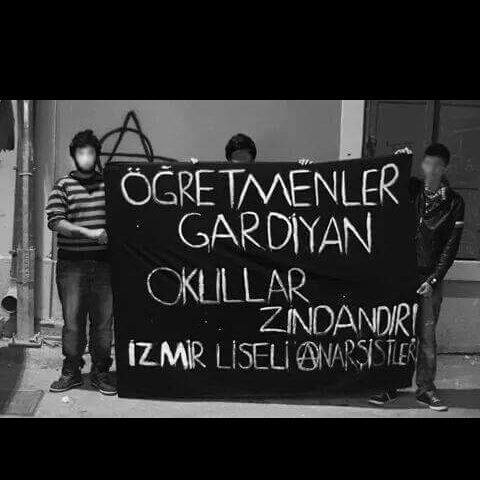 ÖĞRETMENLER
GARDİYAN
OKULLAR
ZINDANDIR!
İZMİR LİSELİ ANARŞİSTLER